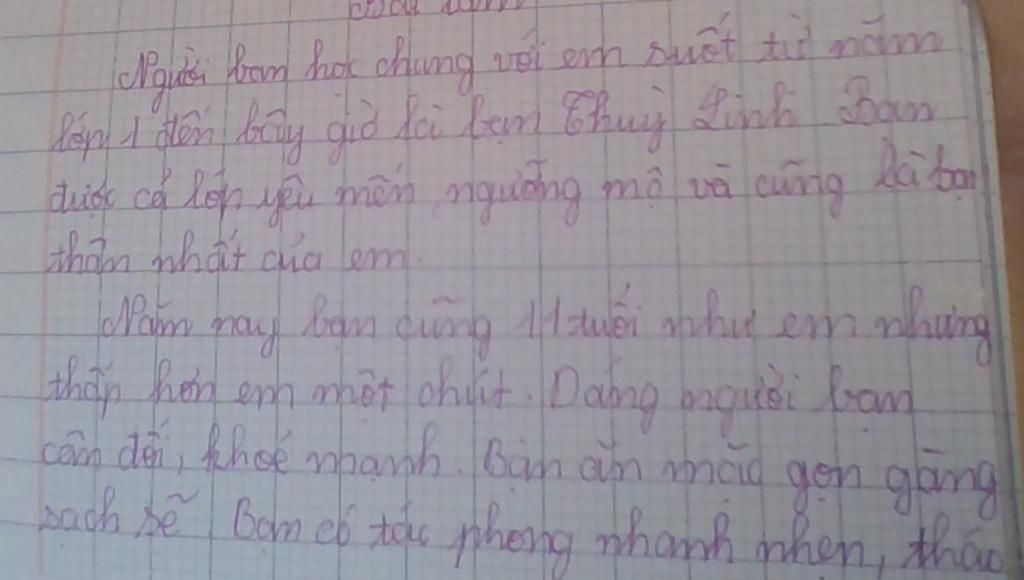 Người bạn học chung với em suốt từ năm
lớp 1 đến bây giờ là bạn Thuỳ Linh Bạn
được cả lớp yêu mến, ngưỡng mộ và cũng là bạn
thân nhất của em.
Năm nay bạn cũng 11 tuổi như em nhưng
thấp hơn em một chút. Dáng người bạn
cân đối, khoẻ mạnh. Bạn ăn mặc gọn gàng
sạch sẽ Bạn có tác phong nhanh nhẹn, tháo